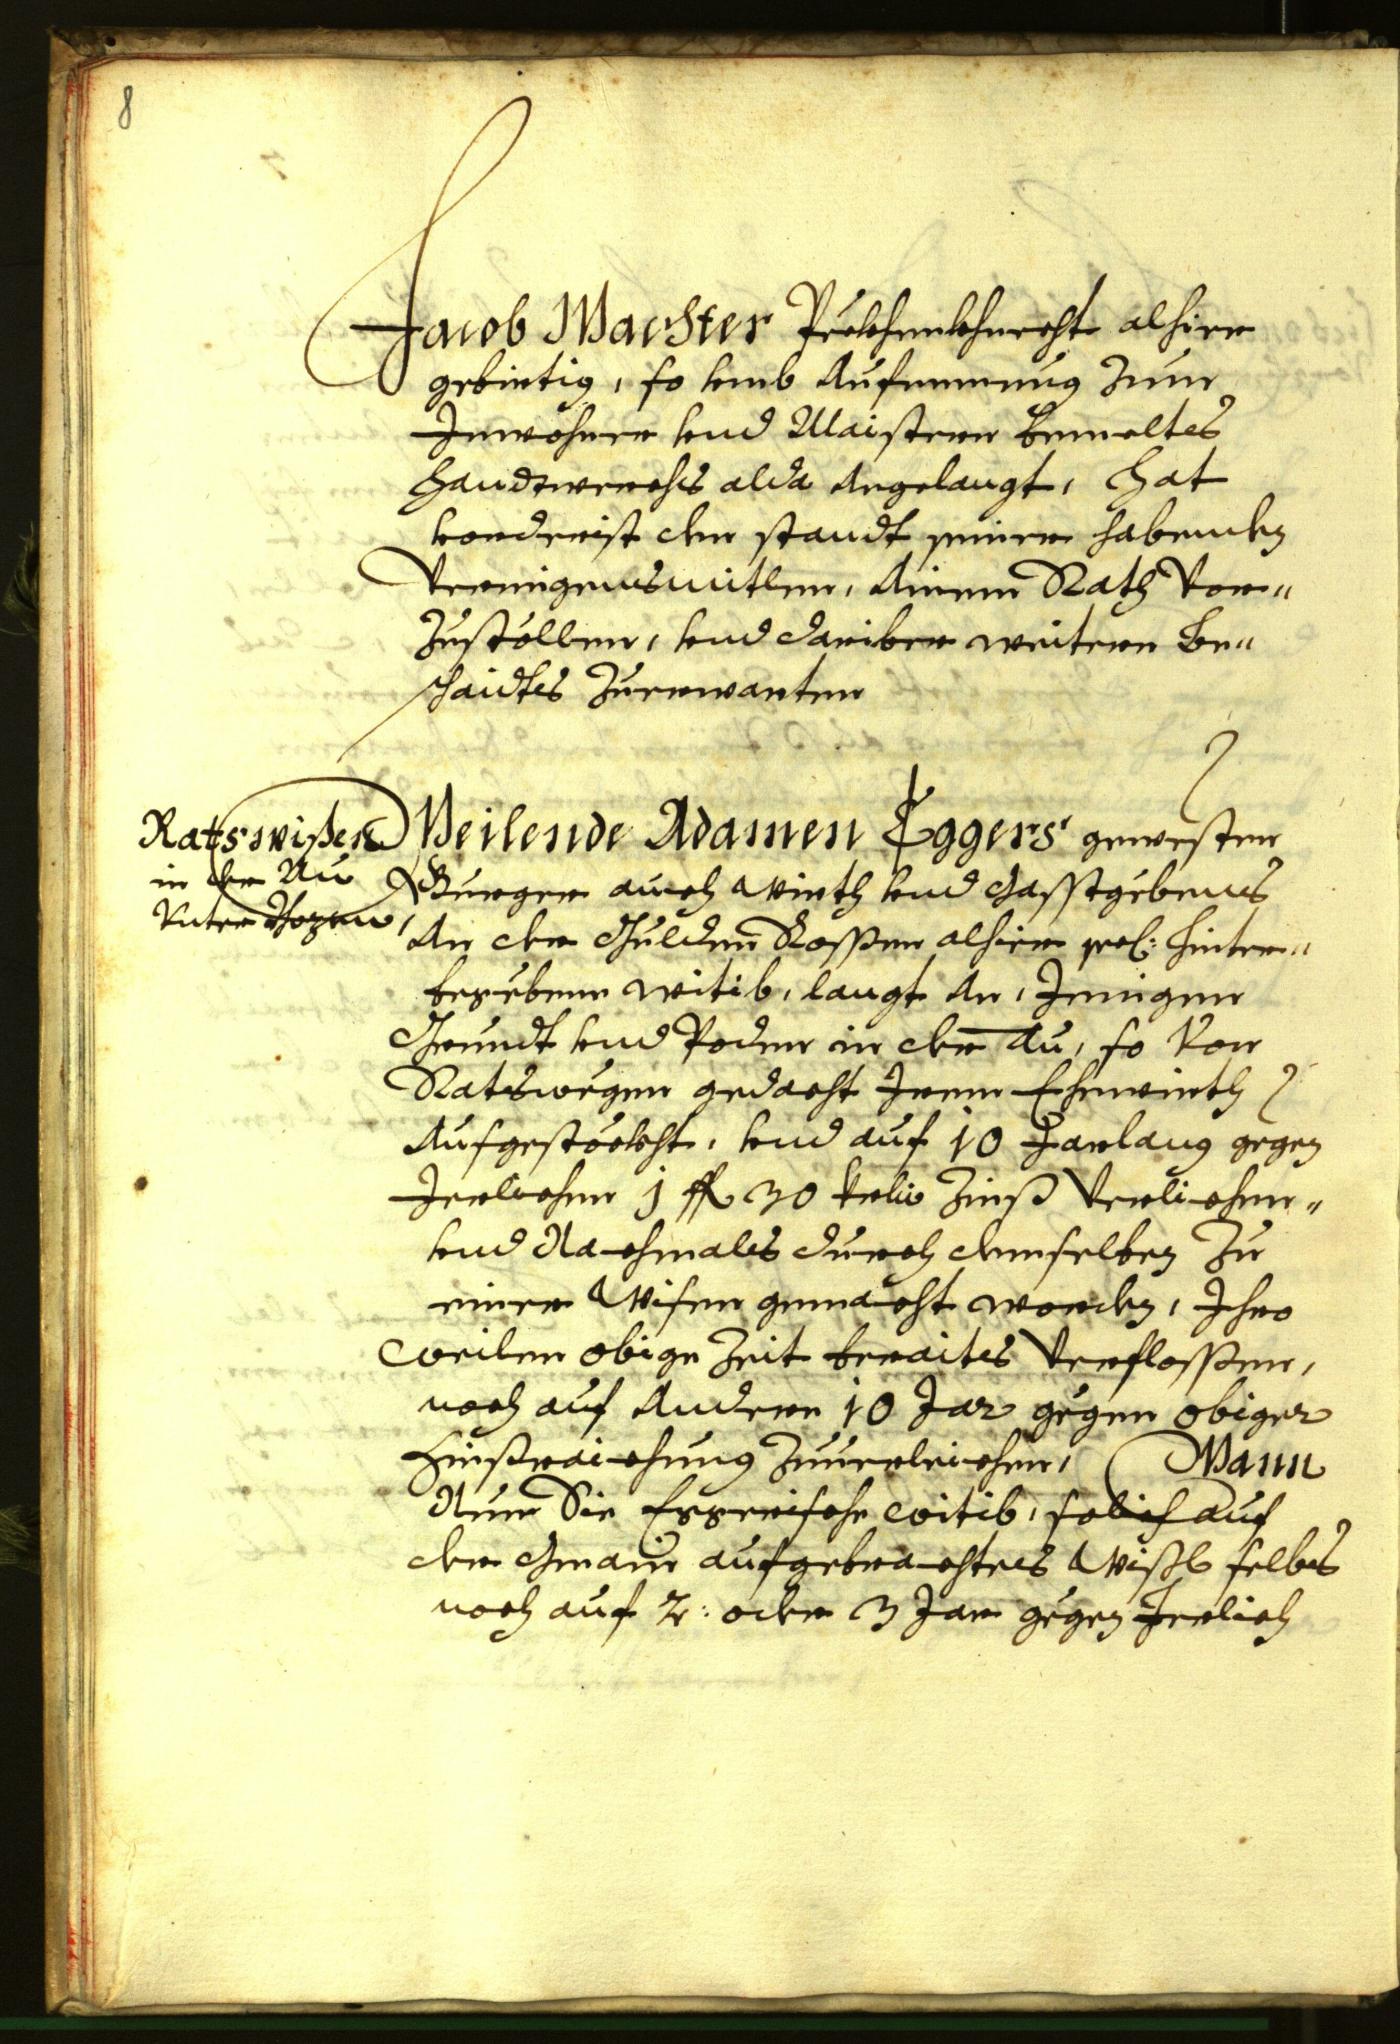 8
Jacob Machster Pröckhenkhnecht alhier
gebirtig, so umb Aufnemmung zum
Inwohner und Maistern bemeltes
Handtwerchs alda Angelangt, Hat
vordrist den standt seiner habenden
Vermigensmitlen, Ainem Rath vor„
zustöllen, und dariber weitern be„
schaidtes zuerwarten
Ratswißen
in der Au
unter Pozen,
Weilende Adamen Eggers gewesten
Burger auch Wirth und Gasstgebens
An der Gulden Rossen alhier sel: hinter„
bezebene witib, langt An, Jenigen
Grundt und Poden in der Au, so von
Ratswegen gedacht Irem Ehewirth
Aufgestöckht, und auf 10 Jarlang gegen
Jerlichen 1 fl 30 kr Zinß Verlichen„
und Nachmales durch denselben zu
einer Wisen gemacht worden, Ihro
weilen obige Zeit beraites Verflossen,
noch auf Andere 10 Jar gegen obiger
Zinßraichung zuuerleichen, Wann
Nun Sie Eggerische witib, solich auf
der Gmain aufgebrachtes Wißl selbes
noch auf 2: oder 3 Jar gegen Jerlich